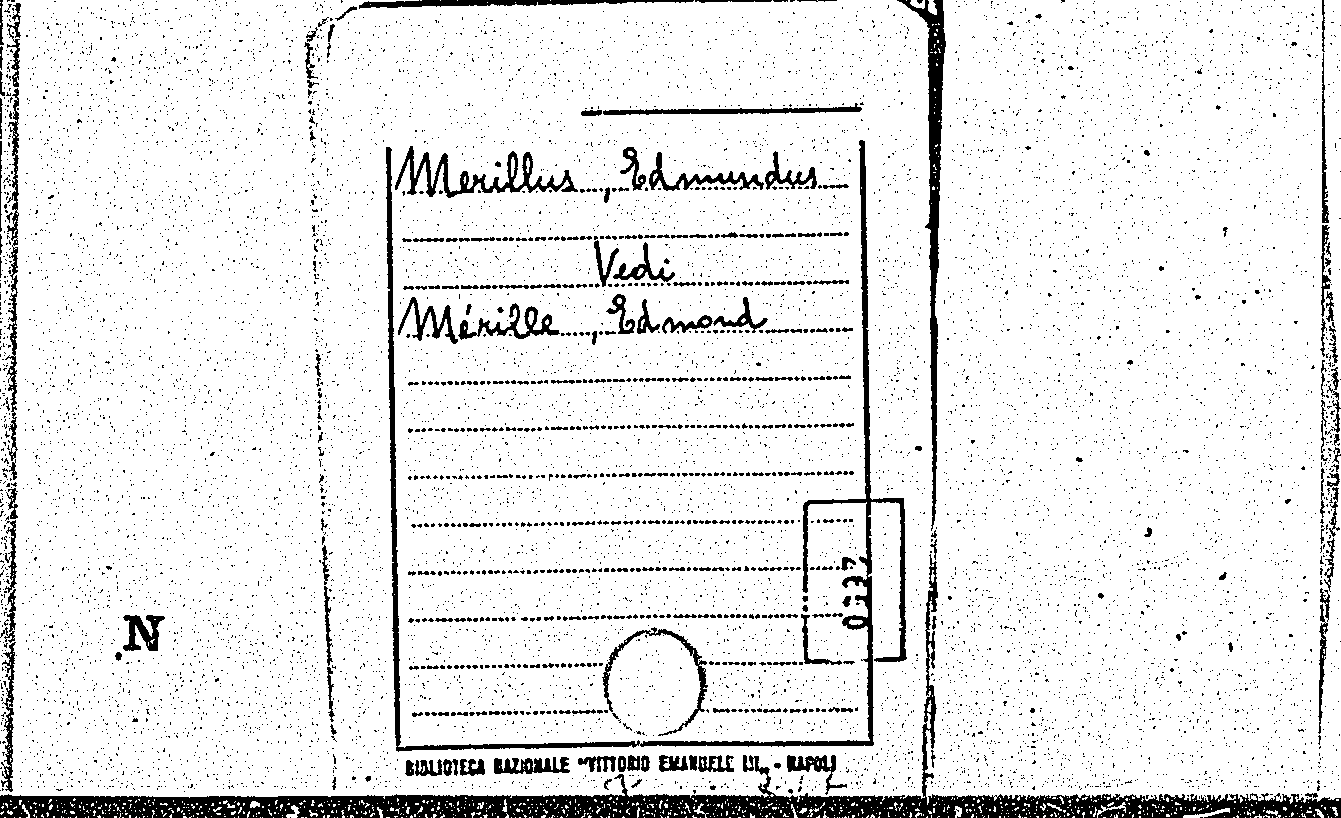 Merillus, Edmundus
Vedi
Mérille, Edmond
N
BIBLIOTECA NAZIONALE "VITTORIO EMANUELE III" - NAPOLI